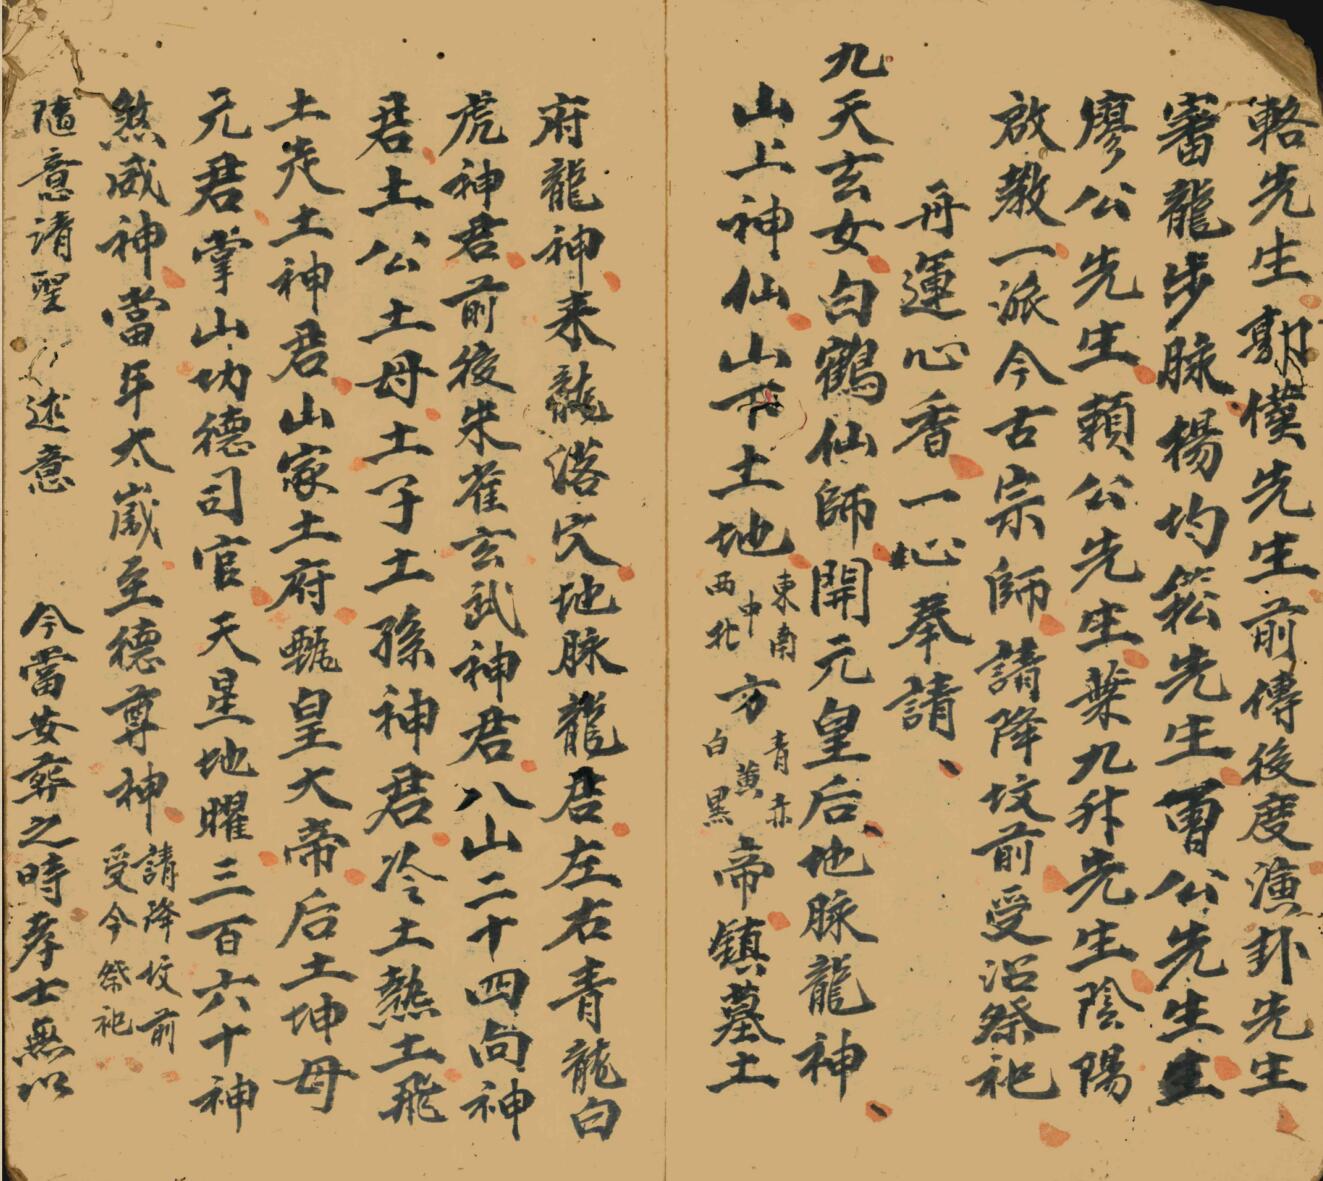 輅先生郭僕先生前傳後度演卦先生
審龍步脉楊均菘先生曾公先生生
廖公先生賴公先生葉九升先生陰陽
啟教一派今古宗師請降坟前受沿祭祀
再運心香一心奉請
九天玄女白鶴仙師開元皇后地脉龍神
山上神仙山下土地東南中西北方青赤黃白黑帝鎮墓土
府龍神来龍落穴地脉龍君左右青龍白
虎神君前後朱雀玄武神君八山二十四向神
君土公土母土子土孫神君冷土熱土飛
土走土神君山家土府甄皇大帝后土坤母
元君掌山功德司官天星地曜三百六十神
煞威神當年太歲至德尊神請降坟前受今祭祀
隨意請聖 述意 今當安葬之時孝士無以